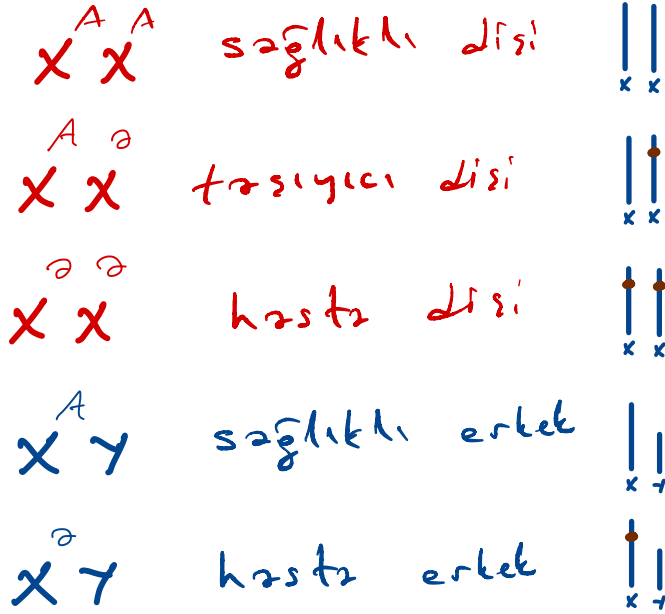 Xᴬ Xᴬ sağlıklı dişi x x
Xᴬ Xᵃ taşıyıcı dişi x x
Xᵃ Xᵃ hasta dişi x x
Xᴬ Y sağlıklı erkek x Y
Xᵃ Y hasta erkek x Y